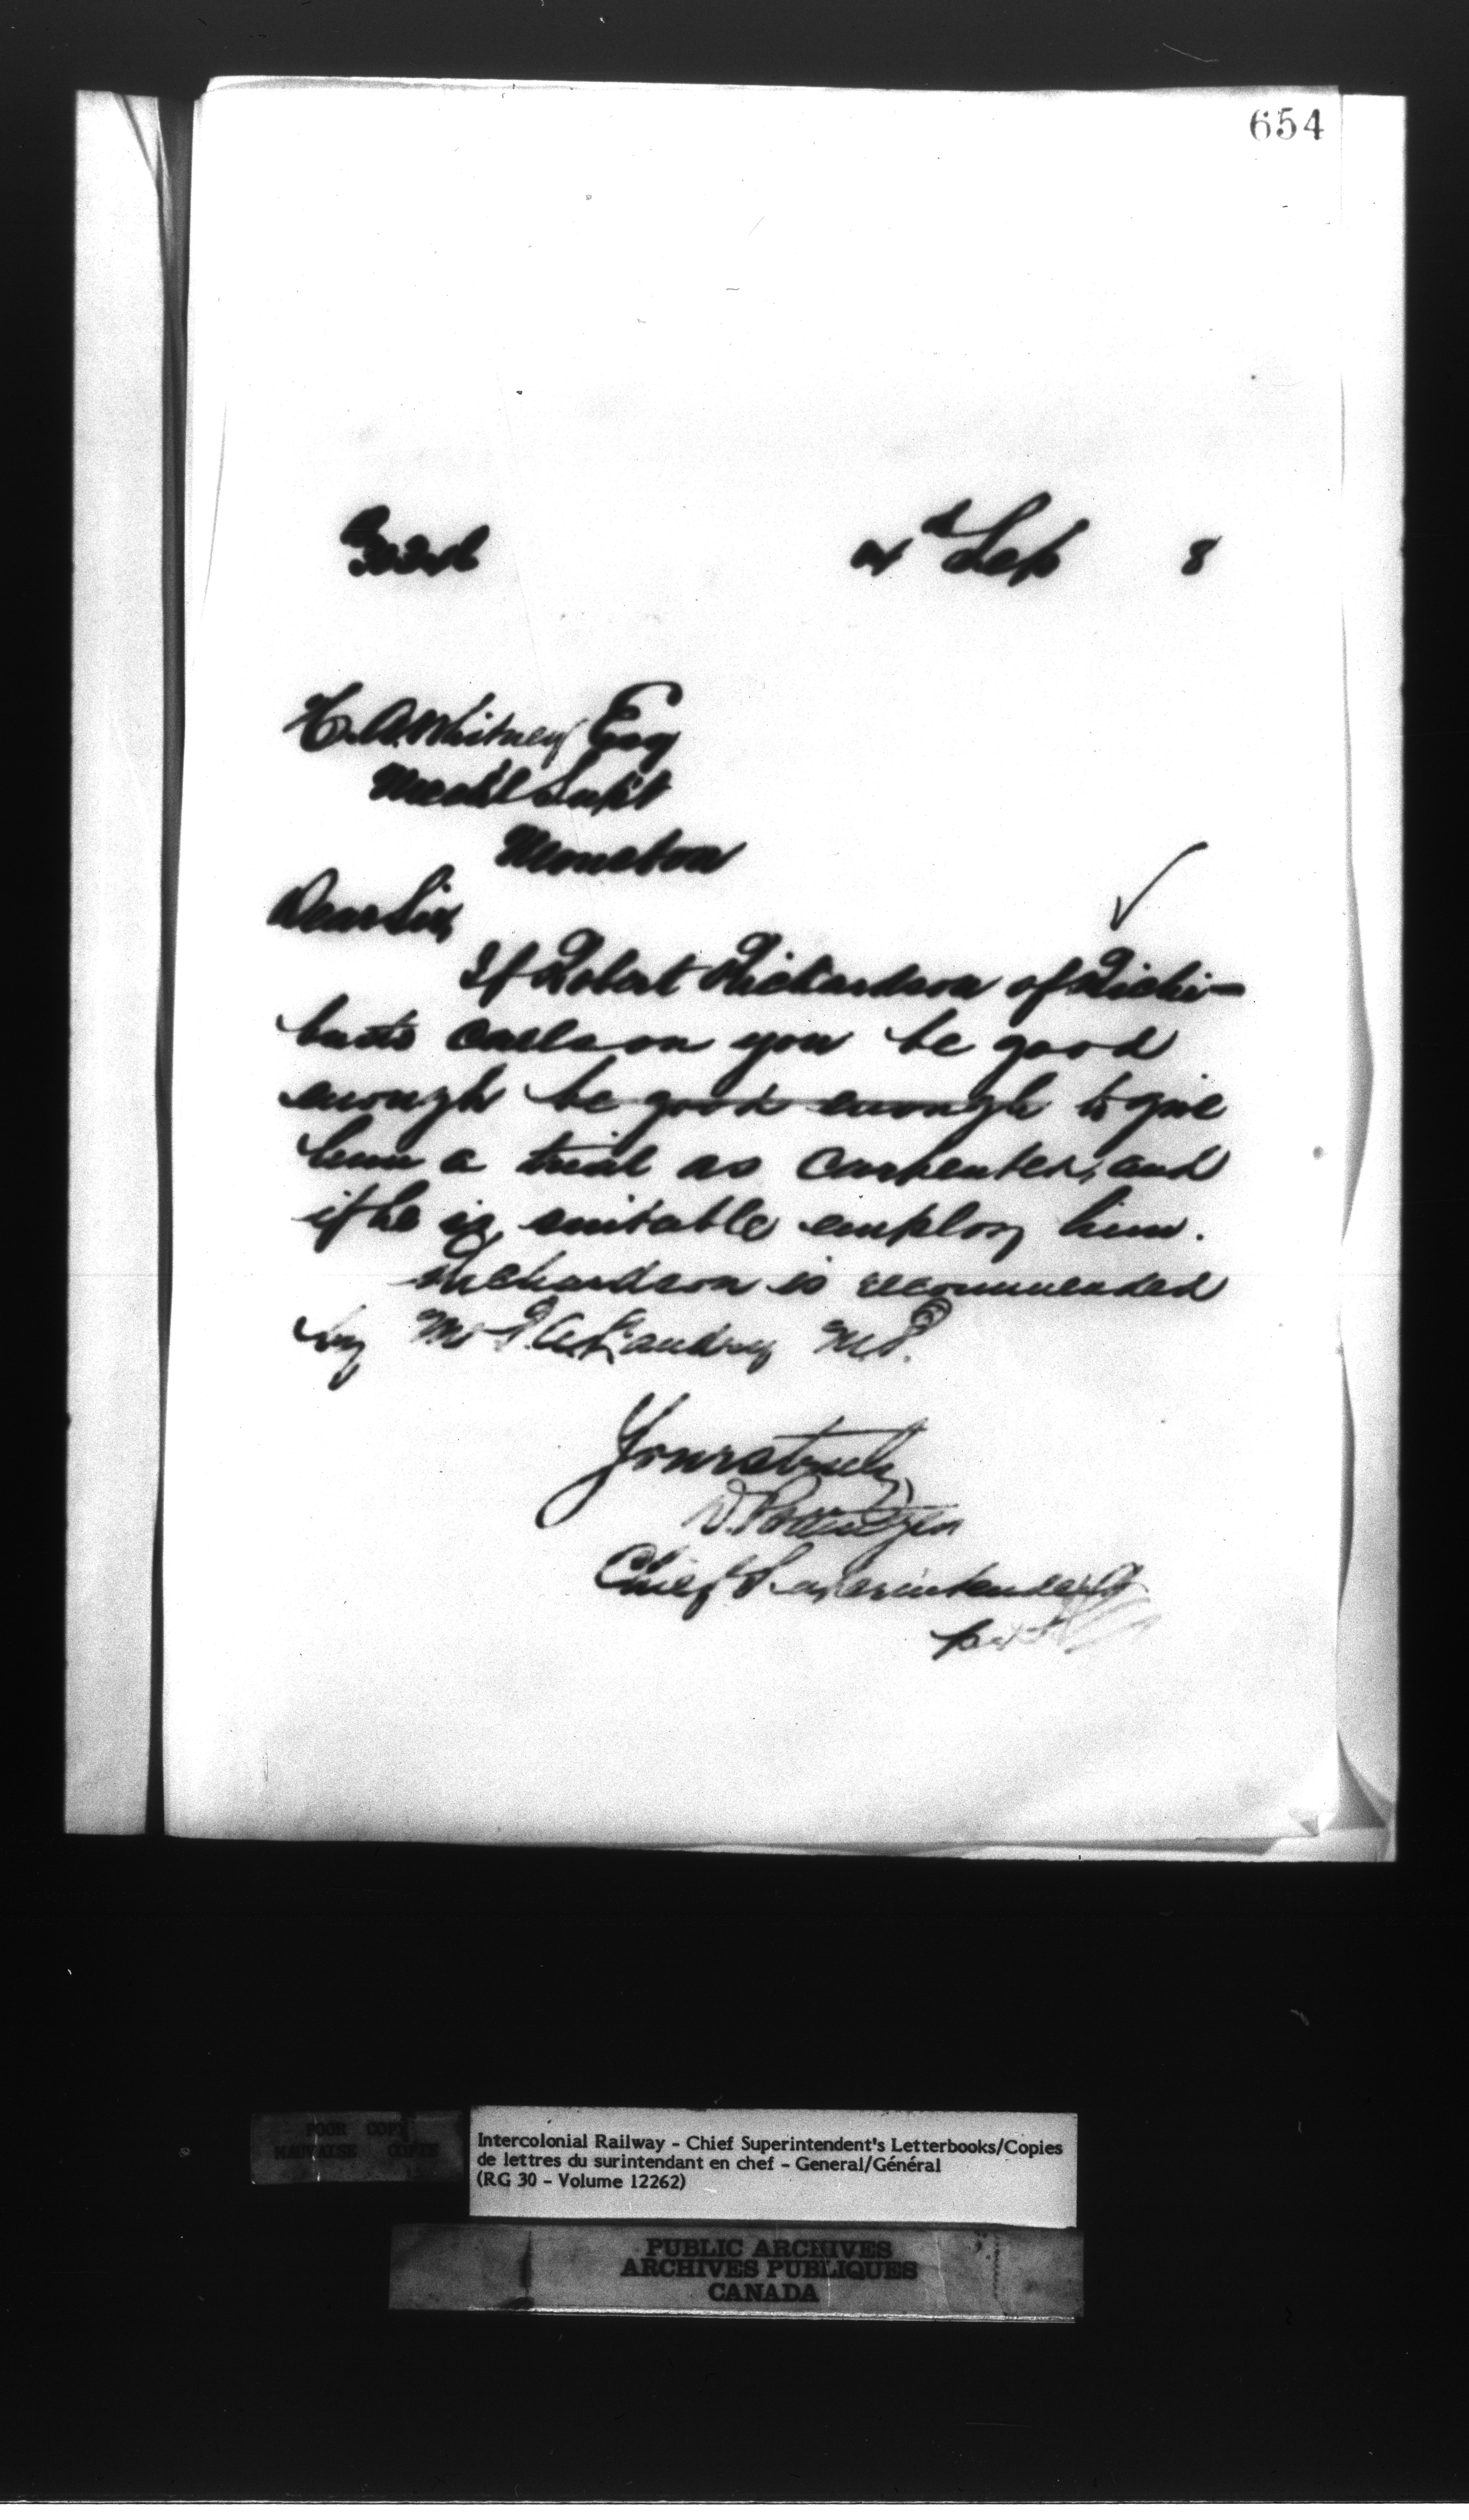 654
Sep 8
H. A. Whitney Esq
Mech'l Supt
Moncton
Dear Sir,
If Robert Richardson of Richi-
bucto calls on you be good
enough be good enough to give
him a trial as carpenter, and
if he is suitable employ him.
Richardson is recommended
by Mr P. A. Landry M.P.
Yours truly,
D. Pottinger
Chief Superintendent
per
POOR COPY
MAUVAISE COPIE
Intercolonial Railway - Chief Superintendent's Letterbooks/Copies
de lettres du surintendant en chef - General/Général
(RG 30 - Volume 12262)
PUBLIC ARCHIVES
ARCHIVES PUBLIQUES
CANADA